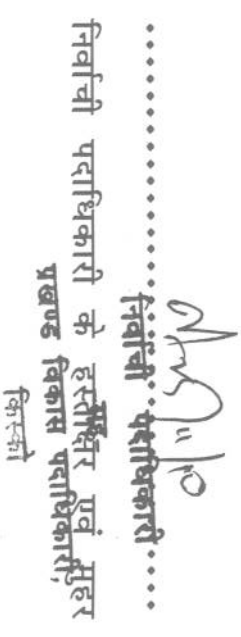 निर्वाची पदाधिकारी
निर्वाची पदाधिकारी के हस्ताक्षर एवं मुहर
प्रखण्ड विकास पदाधिकारी,
किस्को